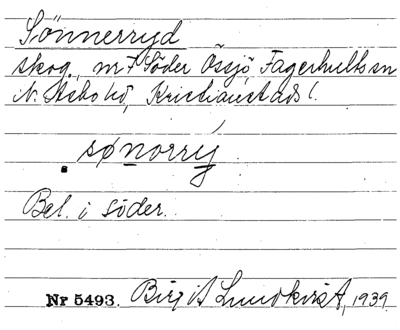 Sönnerryd
skog, nr 7 Söder Össjö, Fagerhults sn
N. Åsbo hd, Kristianstads l.
. sønorrý
Bel. i söder.
Nr 5493. Birgit Lundkvist, 1939.